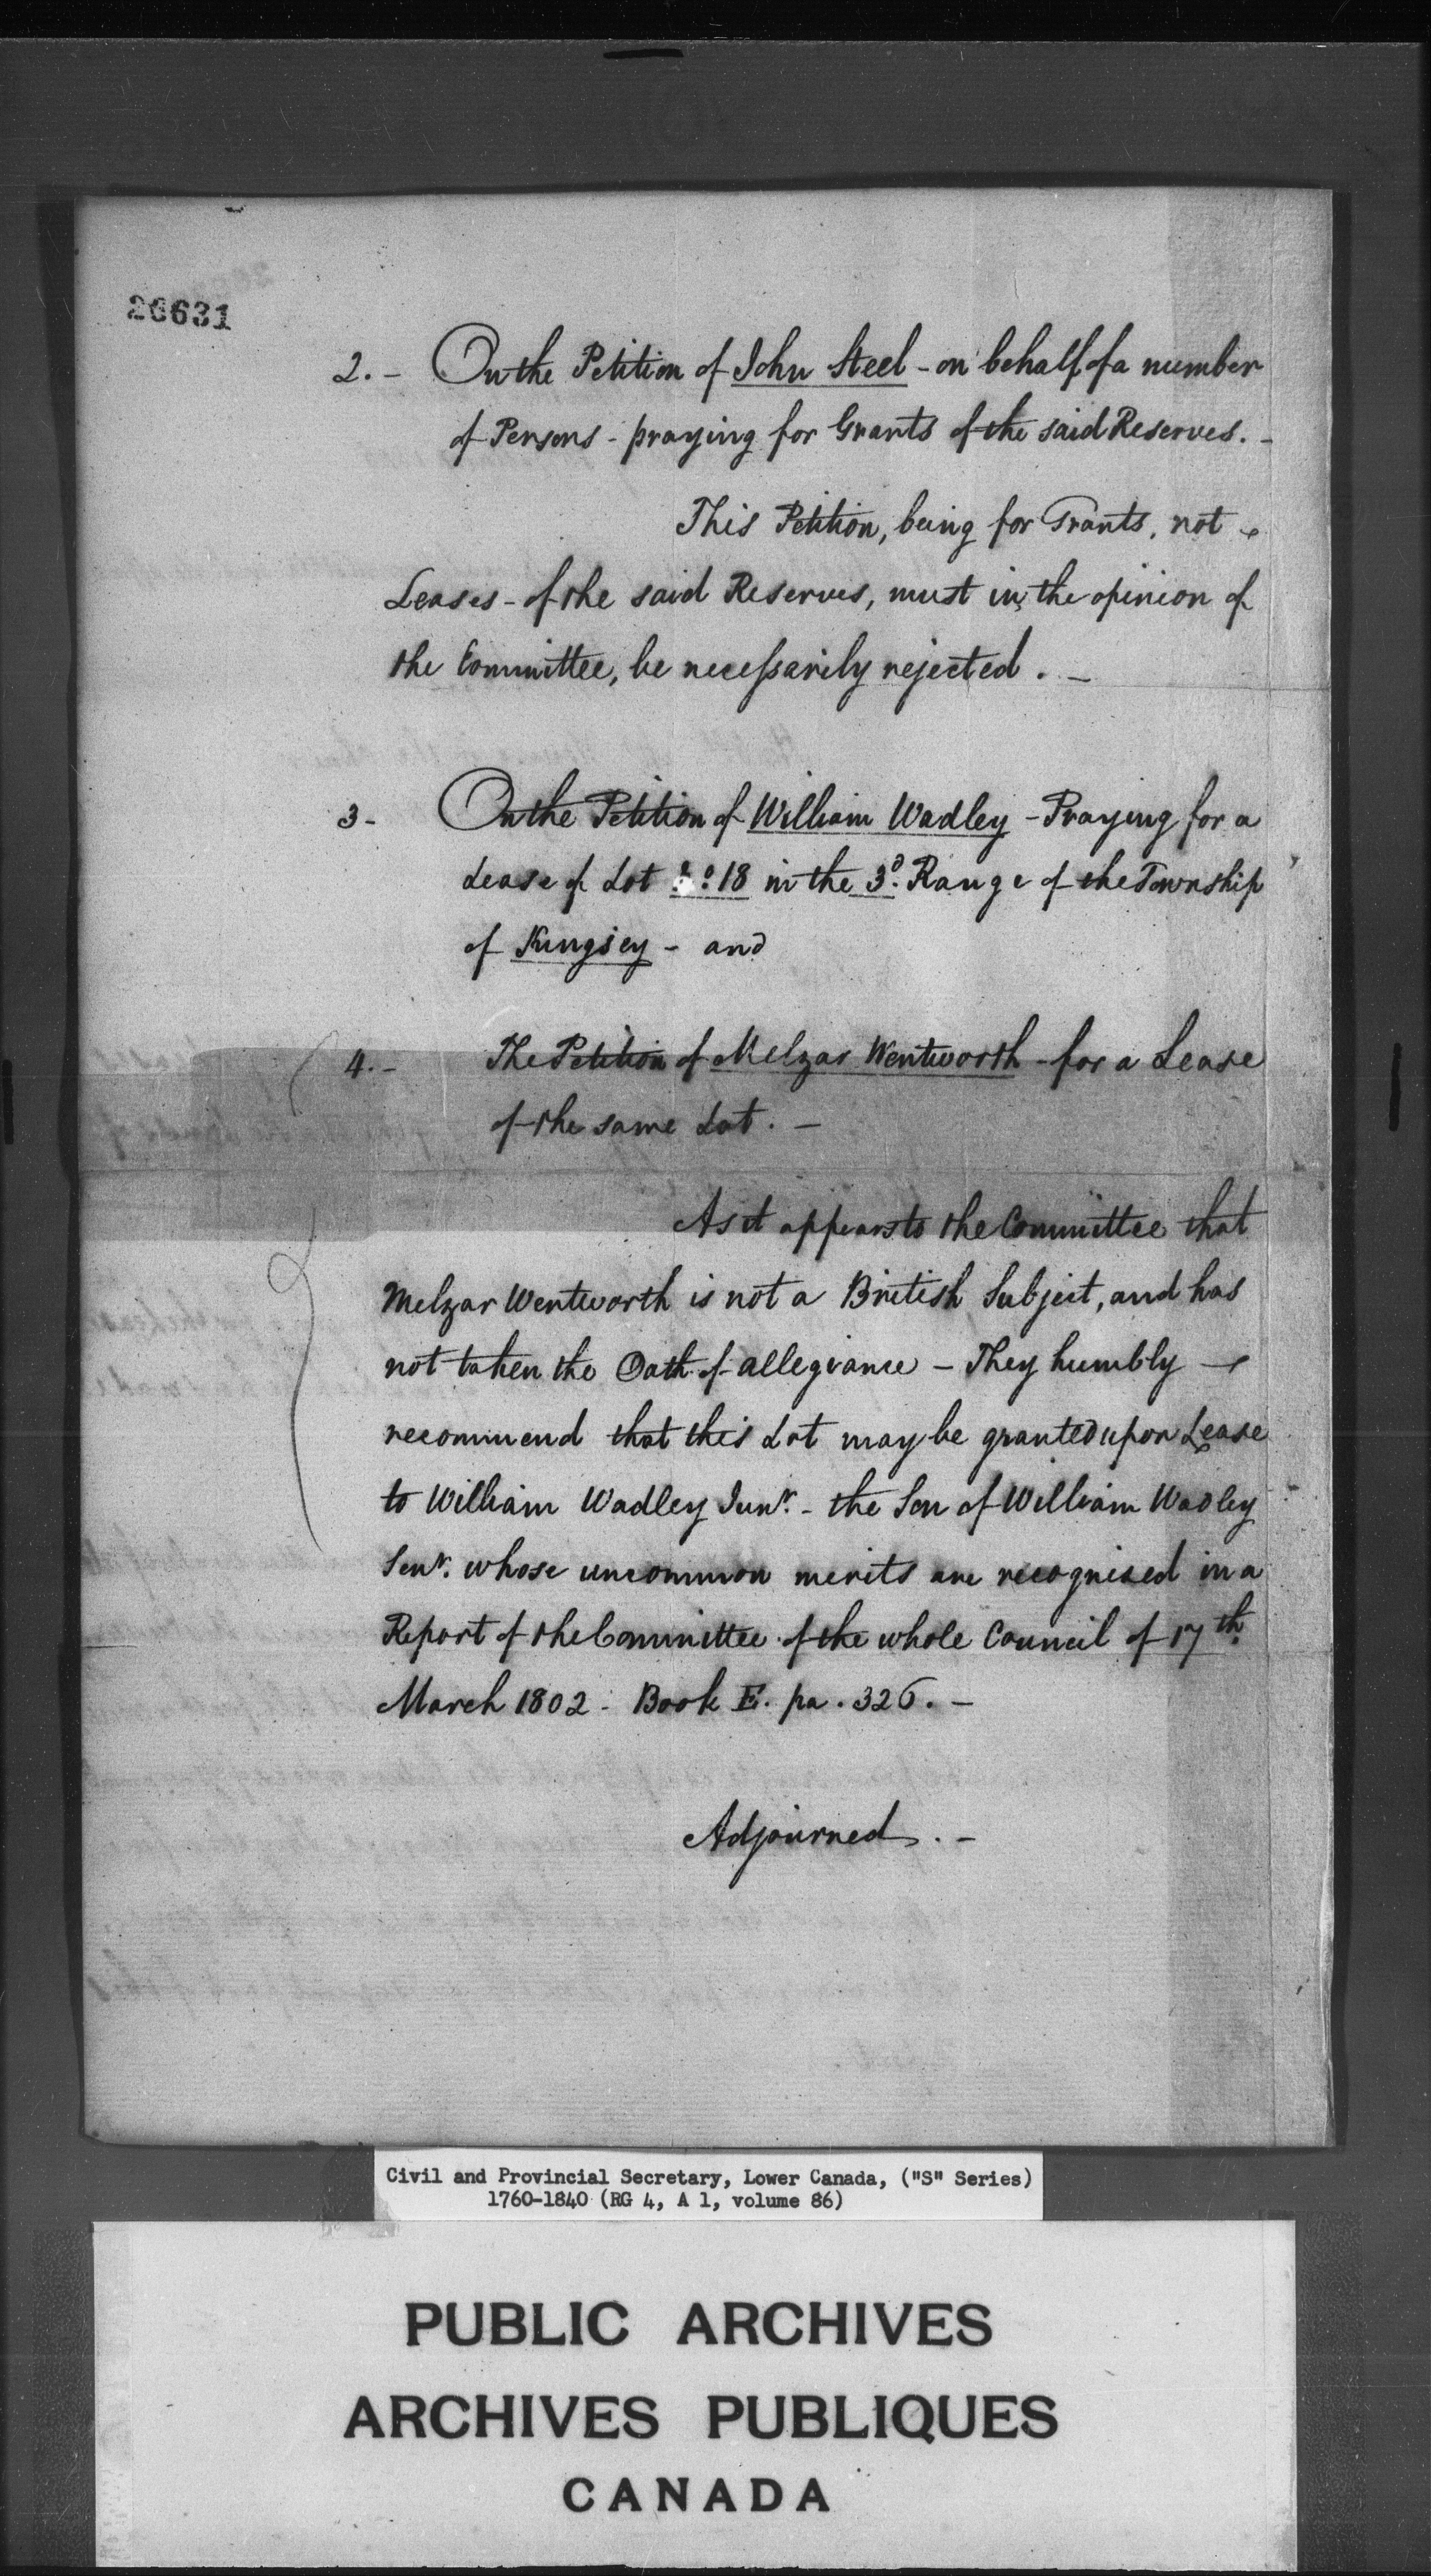 26631
2. - On the Petition of John Steel - on behalf of a number
of Persons - praying for Grants of the said Reserves. -
This Petition, being for Grants, not
Leases - of the said Reserves, must in the opinion of
the Committee, be necessarily rejected. -
3 - On the Petition of William Wadley - Praying for a
Lease of Lot No. 18 in the 3d. Range of the Township
of Kingsey - and
4. - The Petition of Melzar Wentworth - for a Lease
of the same Lot. -
As it appears to the Committee that
Melzar Wentworth is not a British Subject, and has
not taken the Oath of allegiance - They humbly -
recommend that this Lot may be granted upon Lease
to William Wadley Junr. - the Son of William Wadley
Senr. whose uncommon merits are recognised in a
Report of the Committee of the whole Council of 17th.
March 1802 - Book E. pa. 326. -
Adjourned. -
Civil and Provincial Secretary, Lower Canada, ("S" Series)
1760-1840 (RG 4, A 1, volume 86)
PUBLIC ARCHIVES
ARCHIVES PUBLIQUES
CANADA